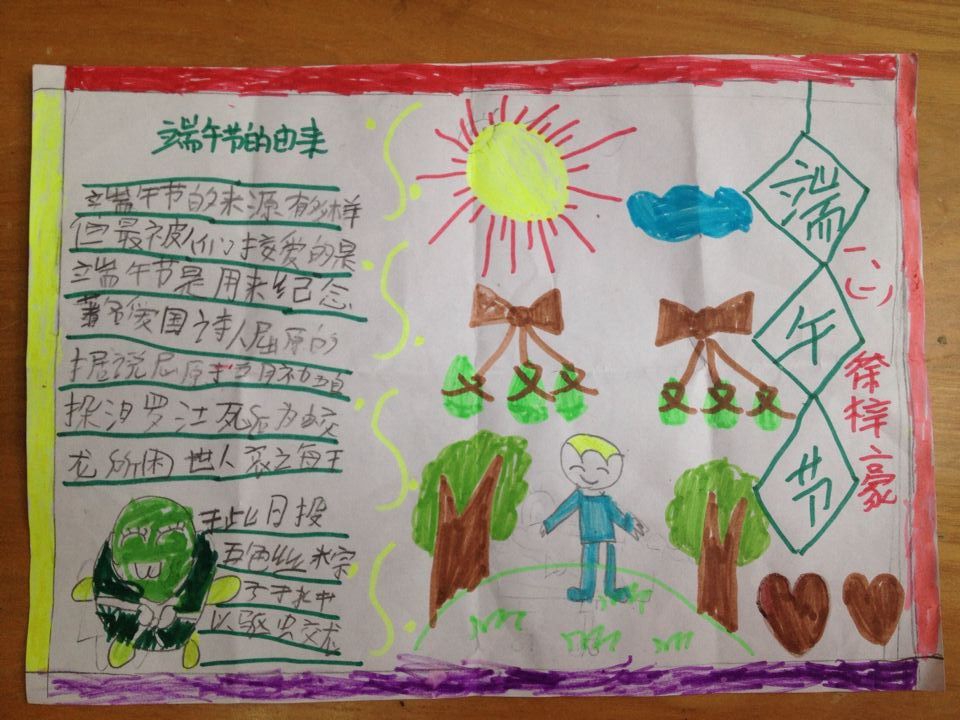 端午节的由来
端午节的来源有多样
但最被人们接爱的是
端午节是用来纪念
著名爱国诗人屈原的
据说屈原于五月初五自
投汨罗江死后为蛟
龙所困世人哀之每于
此日投
五色丝粽
子于水中
以驱蛟龙
端午节
一(二)
徐梓豪